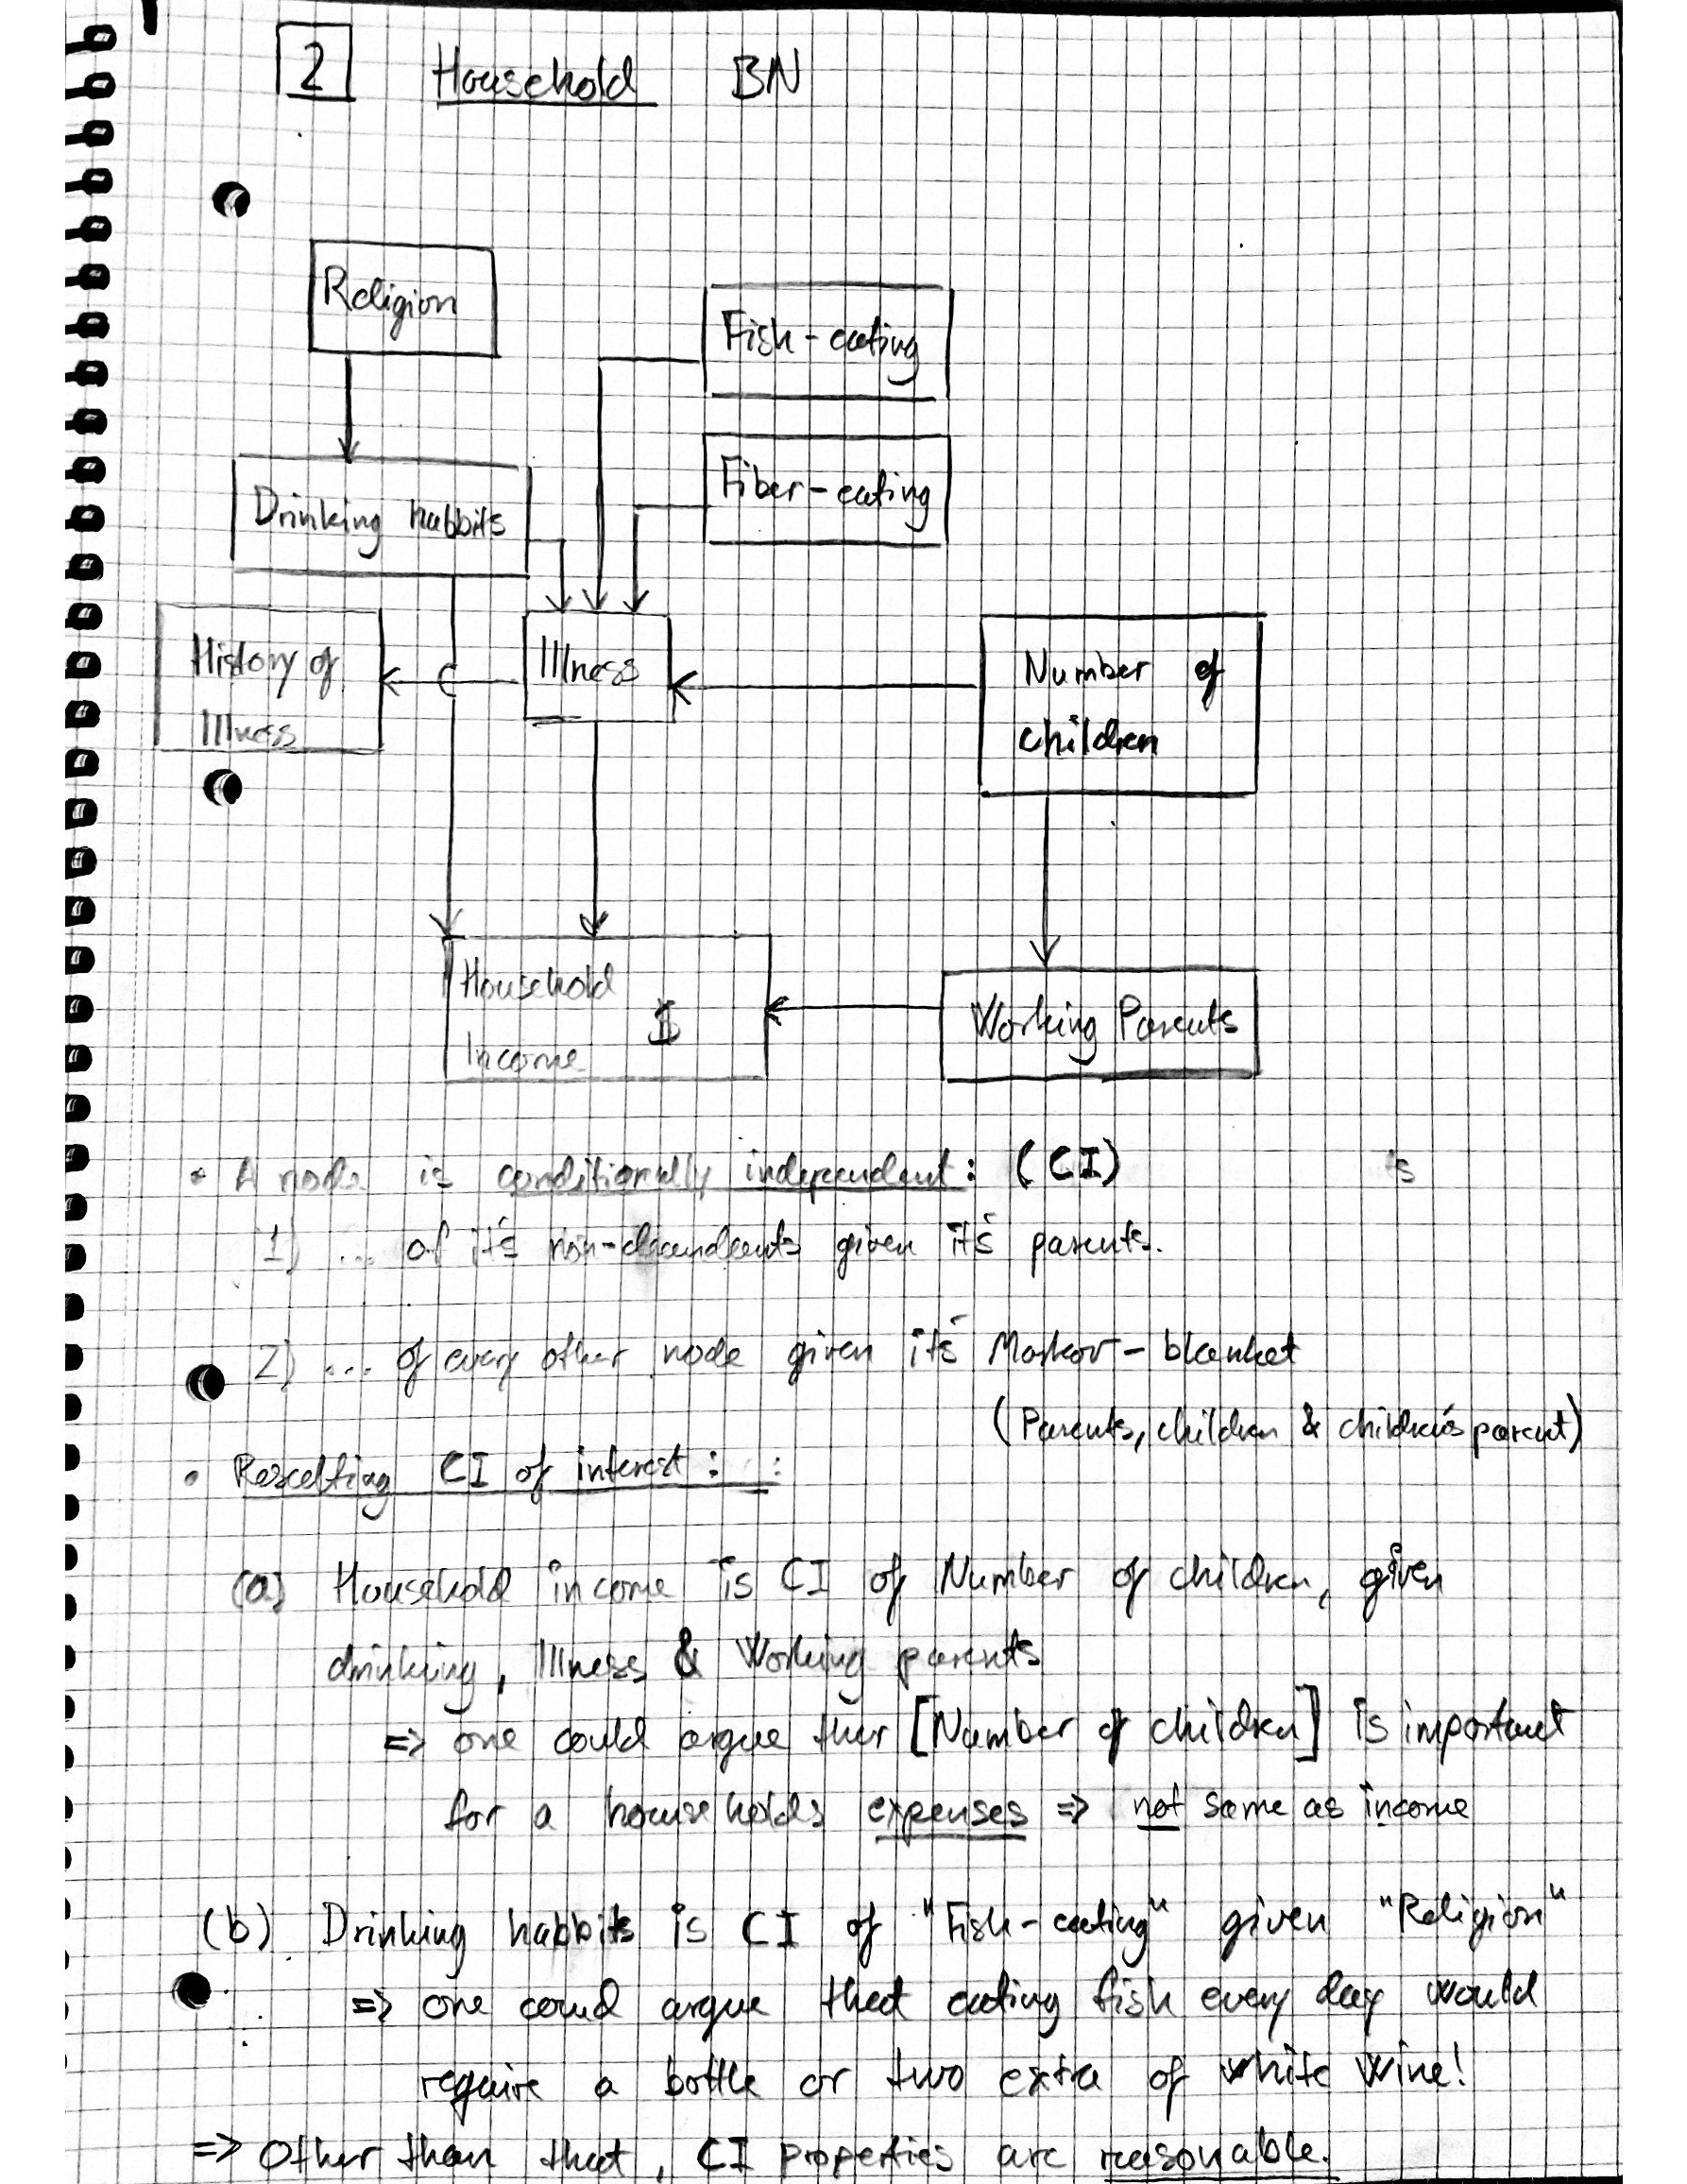 2 Household BN
Religion
Fish-eating
Fiber-eating
Drinking habbits
History of
Illness
Illness
Number of
children
Household
Income $
Working Parents
• A node is conditionally independent: (CI) ts
1) ... of it's non-descendents given it's parents.
2) ... of every other node given it's Markov-blanket
(Parents, children & children's parent)
• Resulting CI of interest: :
(a) Household income is CI of Number of children, given
drinking, Illness & Working parents
=> one could argue that [Number of children] is important
for a households expenses => not same as income
(b) Drinking habbits is CI of "Fish-eating" given "Religion"
=> one could argue that eating fish every day would
require a bottle or two extra of white wine!
=> Other than that, CI properties are reasonable.